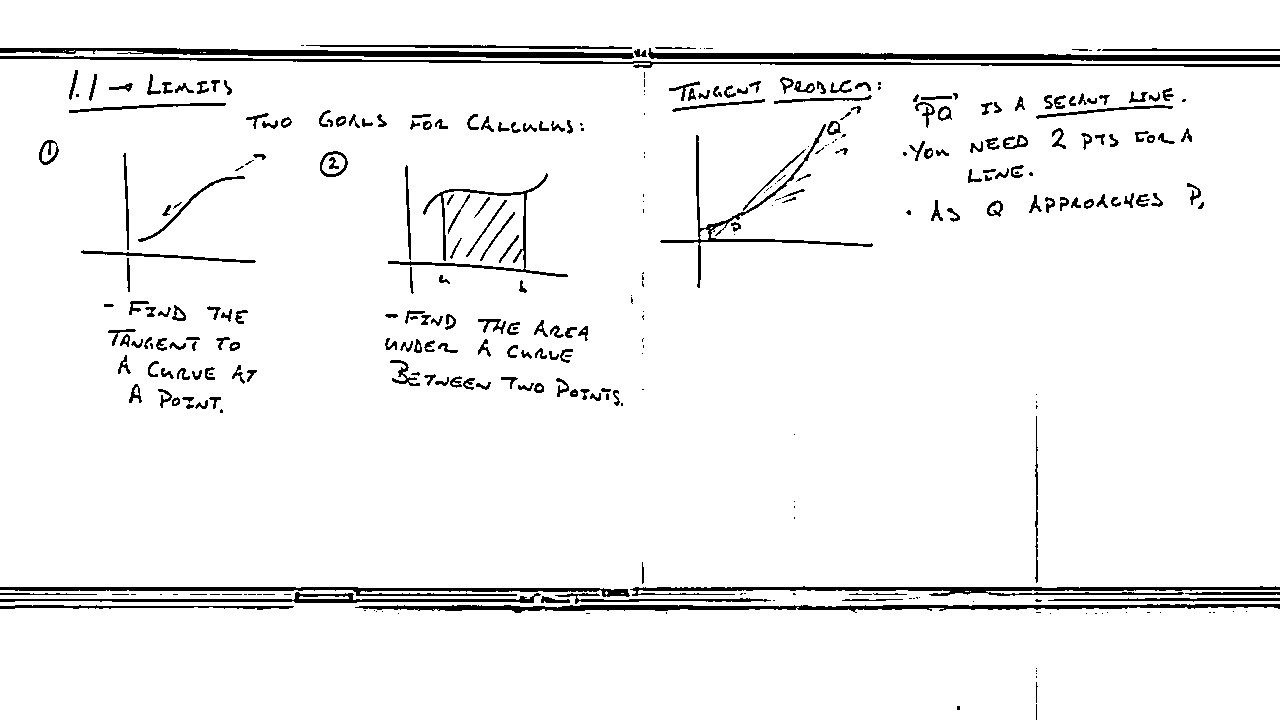 1.1 → LIMITS
TWO GOALS FOR CALCULUS:
①
②
a b
- FIND THE
TANGENT TO
A CURVE AT
A POINT.
- FIND THE AREA
UNDER A CURVE
BETWEEN TWO POINTS.
TANGENT PROBLEM:
Q
P
"PQ" IS A SECANT LINE.
• YOU NEED 2 PTS FOR A
LINE.
• AS Q APPROACHES P,